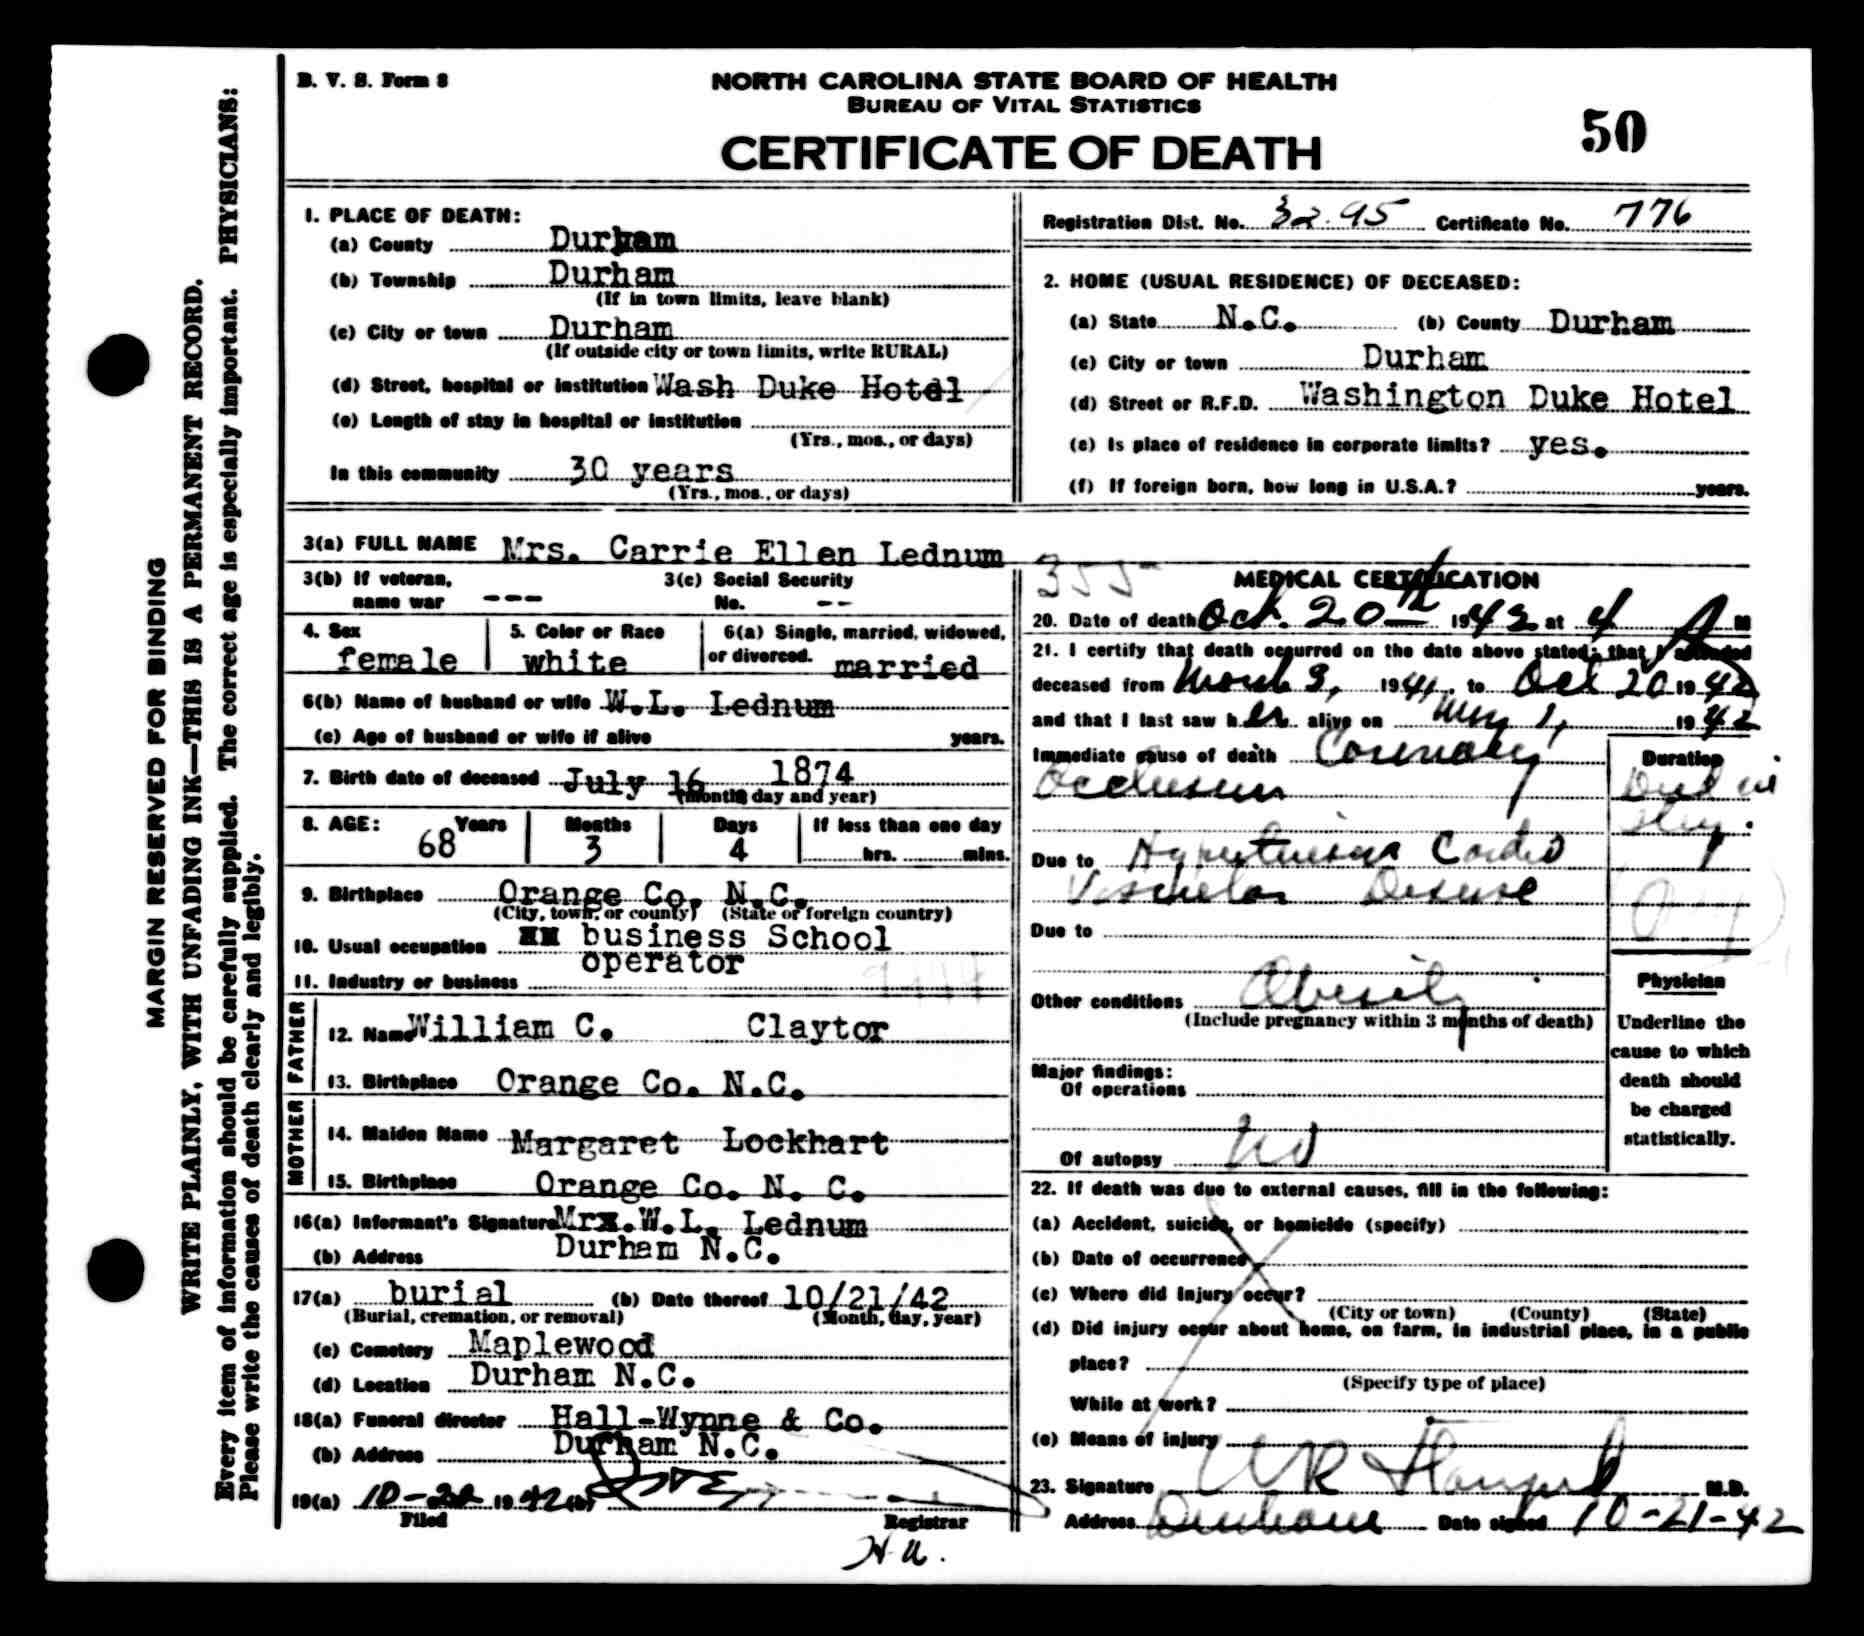 B. V. S. Form 8
NORTH CAROLINA STATE BOARD OF HEALTH
BUREAU OF VITAL STATISTICS
CERTIFICATE OF DEATH
50
MARGIN RESERVED FOR BINDING
WRITE PLAINLY, WITH UNFADING INK—THIS IS A PERMANENT RECORD.
Every item of information should be carefully supplied. The correct age is especially important. PHYSICIANS:
Please write the causes of death clearly and legibly.
1. PLACE OF DEATH:
(a) County Durham
(b) Township Durham
(If in town limits, leave blank)
(c) City or town Durham
(If outside city or town limits, write RURAL)
(d) Street, hospital or institution Wash Duke Hotel
(e) Length of stay in hospital or institution
(Yrs., mos., or days)
In this community 30 years
(Yrs., mos., or days)
Registration Dist. No. 32.95 Certificate No. 776
2. HOME (USUAL RESIDENCE) OF DECEASED:
(a) State N.C. (b) County Durham
(c) City or town Durham
(d) Street or R.F.D. Washington Duke Hotel
(e) Is place of residence in corporate limits? yes.
(f) If foreign born, how long in U.S.A.? years.
3(a) FULL NAME Mrs. Carrie Ellen Lednum
3(b) If veteran, name war ---
3(c) Social Security No. --
4. Sex female
5. Color or Race white
6(a) Single, married, widowed, or divorced. married
6(b) Name of husband or wife W.L. Lednum
(c) Age of husband or wife if alive years.
7. Birth date of deceased July 16 1874
(Month day and year)
8. AGE: Years Months Days If less than one day
68 3 4 hrs. mins.
9. Birthplace Orange Co. N.C.
(City, town, or county) (State or foreign country)
10. Usual occupation business School
operator
11. Industry or business
FATHER
12. Name William C. Claytor
13. Birthplace Orange Co. N.C.
MOTHER
14. Maiden Name Margaret Lockhart
15. Birthplace Orange Co. N. C.
16(a) Informant's Signature Mr. W.L. Lednum
(b) Address Durham N.C.
17(a) burial (b) Date thereof 10/21/42
(Burial, cremation, or removal) (Month, day, year)
(c) Cemetery Maplewood
(d) Location Durham N.C.
18(a) Funeral director Hall-Wynne & Co.
(b) Address Durham N.C.
19(a) 10-22 1942 (b)
Filed Registrar
355
MEDICAL CERTIFICATION
20. Date of death Oct. 20th 1942 at 4 A M
21. I certify that death occurred on the date above stated; that I attended
deceased from March 3, 1941, to Oct 20 1942
and that I last saw her alive on May 1, 1942
Immediate cause of death Coronary
Occlusion
Duration
Died in
sleep.
Due to Hypertensive Cardio
Vascular Disease
Due to
Other conditions Obesity
(Include pregnancy within 3 months of death)
Major findings:
Of operations
Of autopsy No
Physician
Underline the
cause to which
death should
be charged
statistically.
22. If death was due to external causes, fill in the following:
(a) Accident, suicide, or homicide (specify)
(b) Date of occurrence
(c) Where did injury occur?
(City or town) (County) (State)
(d) Did injury occur about home, on farm, in industrial place, in a public
place?
(Specify type of place)
While at work?
(e) Means of injury
23. Signature M.D.
Address Durham Date signed 10-21-42